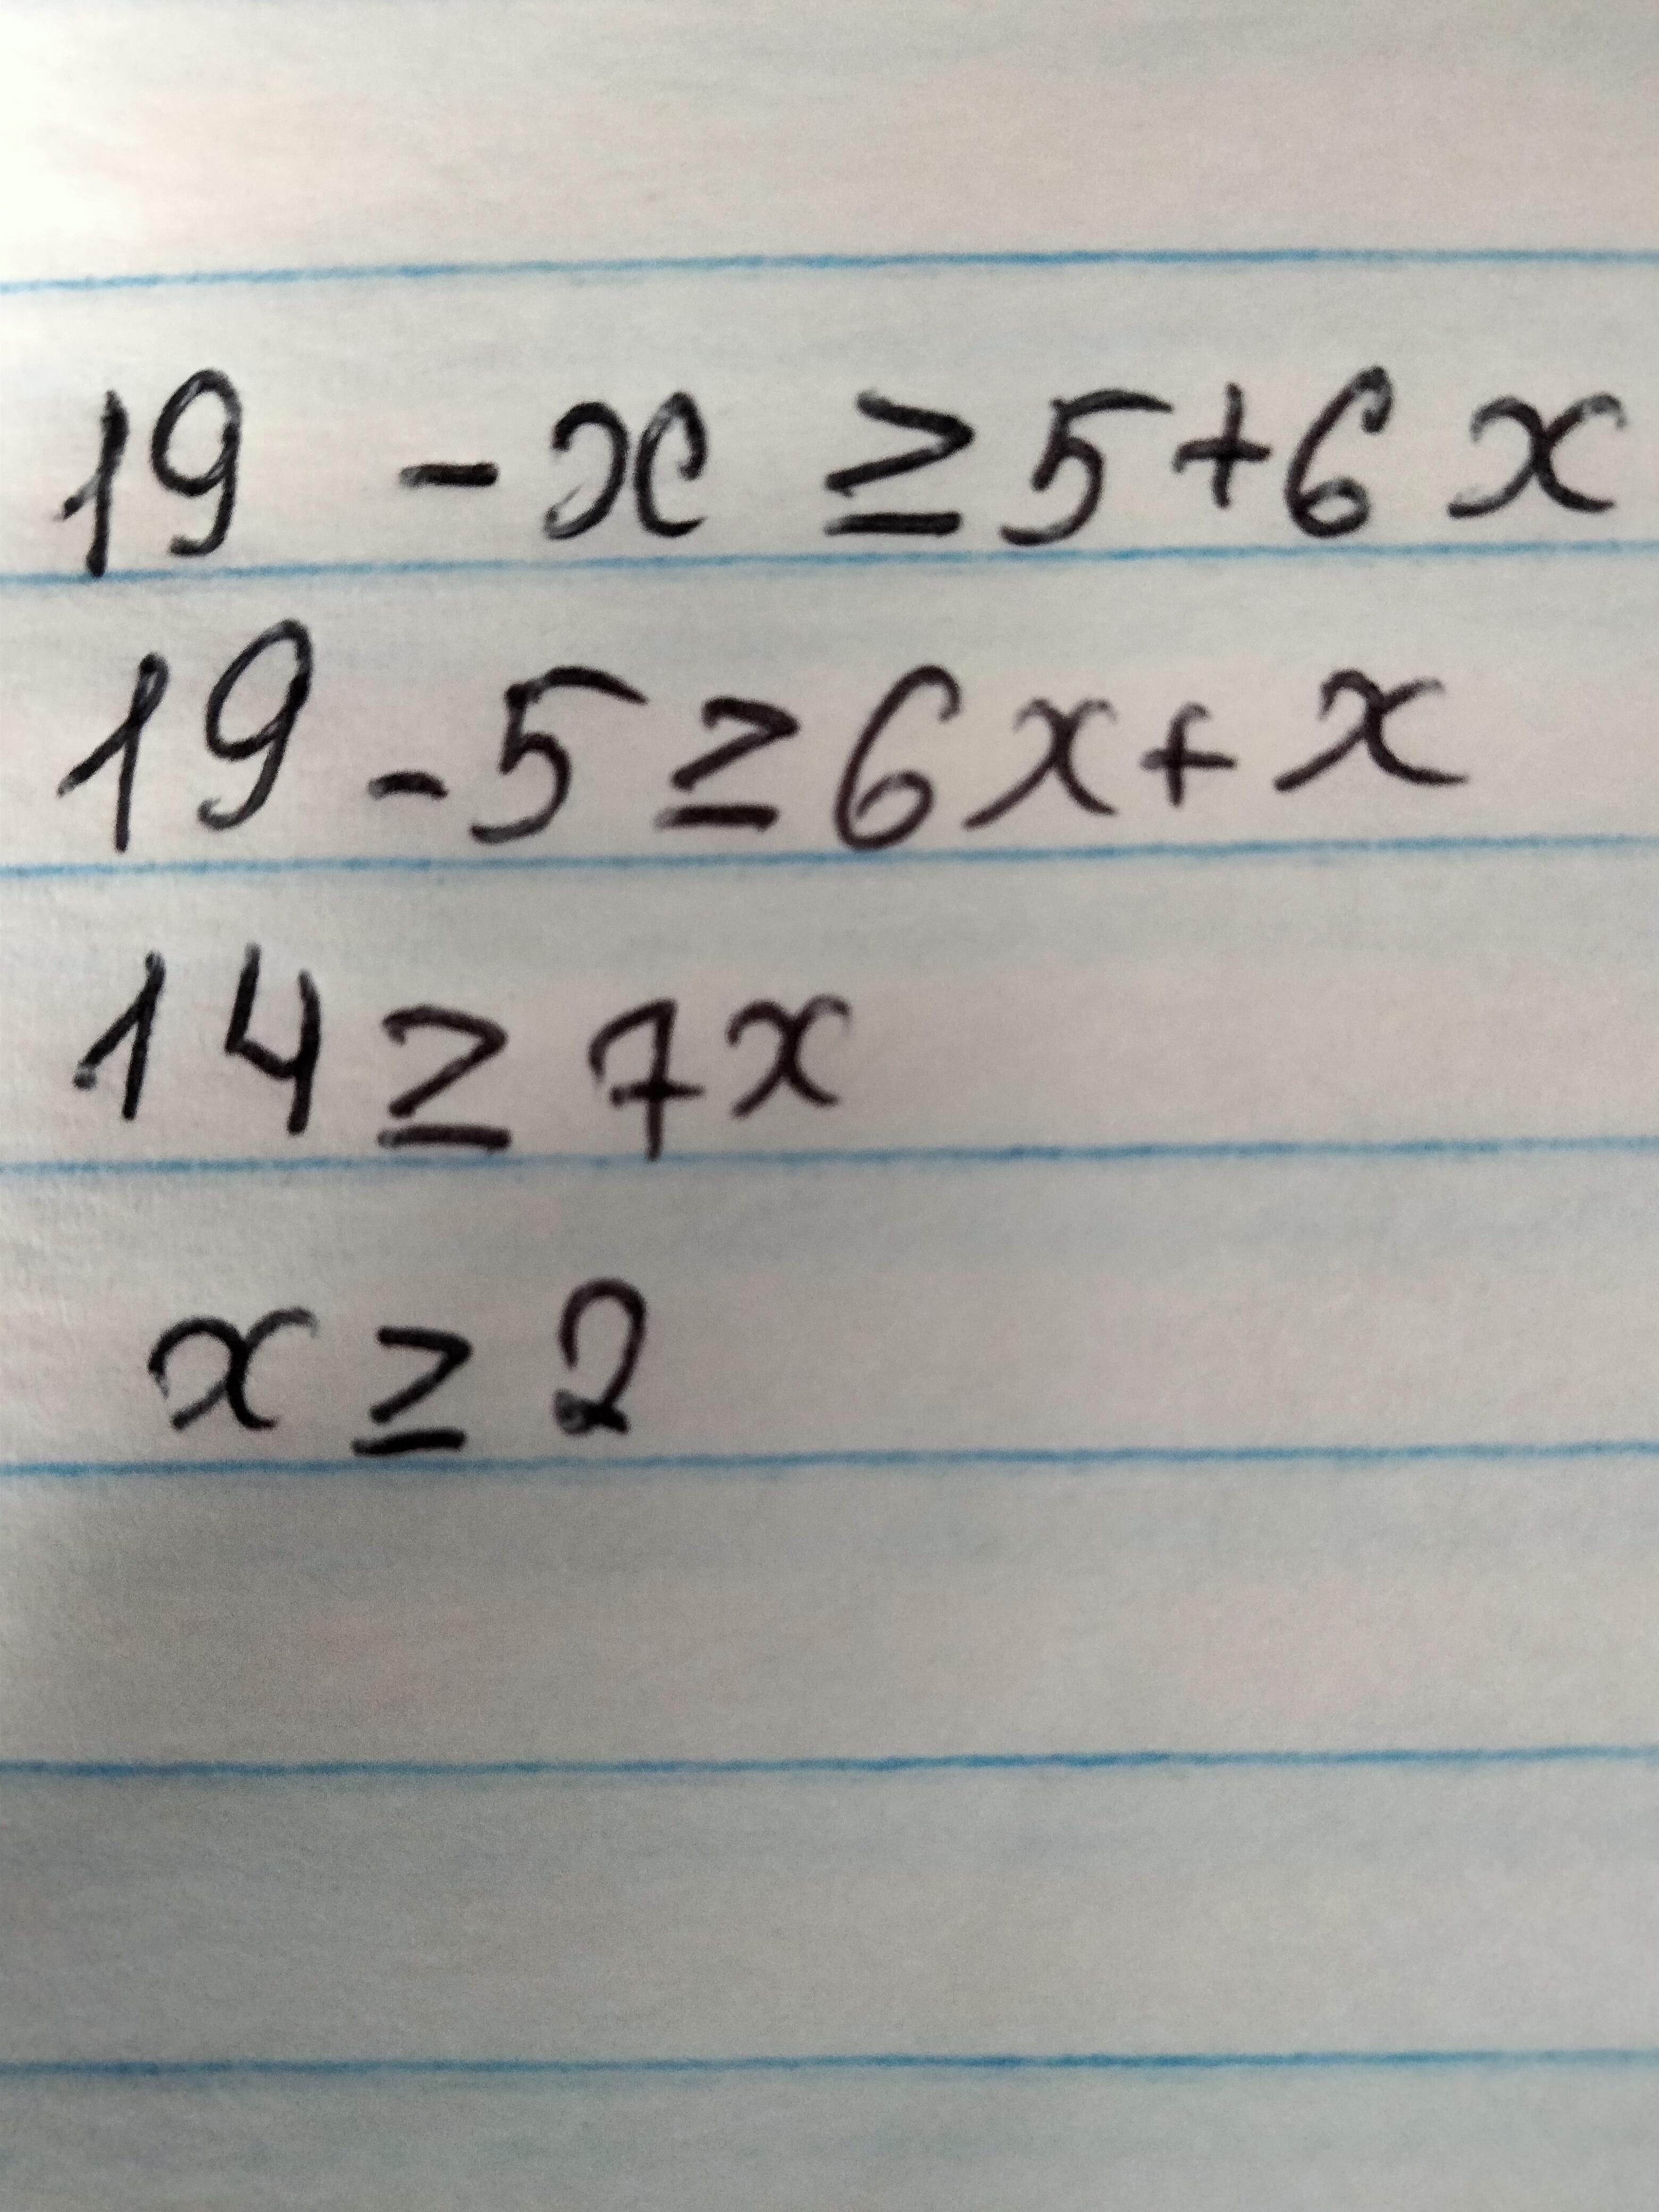 19 - x ≥ 5 + 6x
19 - 5 ≥ 6x + x
14 ≥ 7x
x ≥ 2